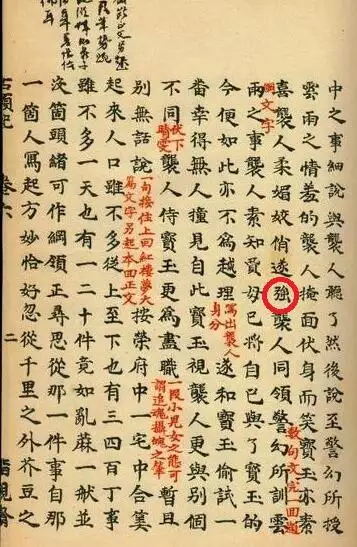 中之事細說與襲人聽了然後說至警幻所授
雲雨之情羞的襲人掩面伏身而笑寶玉亦素
喜襲人柔媚姣俏遂強襲人同領警幻所訓雲
雨之事數句文完一回題綱文字襲人素知賈母已將自己與了寶玉
今便如此亦不為越理寫出襲人身分遂和寶玉偷試一
番幸得無人撞見自此寶玉視襲人更與別個
不同伏下晴雯襲人侍寶玉更為盡職一段小兒女之態可謂追魂攝魄之筆暫且
別無話說一句接住上回紅樓夢大篇文字另起本回正文按榮府中一宅中合算
起來人口雖不多從上至下也有三四百丁事
雖不多一天也有一二十件竟如亂蔴一般並
沒箇頭緒可作綱領正尋思從那一件事自那
一箇人寫起方妙恰好忽從千里之外芥豆之
石頭記 卷六 二 脂硯齋